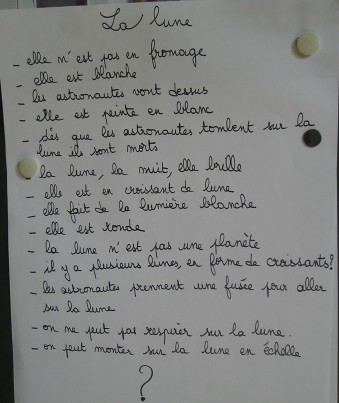 La lune
- elle n'est pas en fromage
- elle est blanche
- les astronautes vont dessus
- elle est peinte en blanc
- dés que les astronautes tombent sur la
lune ils sont morts
- la lune, la nuit, elle brille
- elle est en croissant de lune
- elle fait de la lumière blanche
- elle est ronde
- la lune n'est pas une planète
- il y a plusieurs lunes, en forme de croissants?
- les astronautes prennent une fusée pour aller
sur la lune
- on ne peut pas respirer sur la lune.
- on peut monter sur la lune en échelle
?